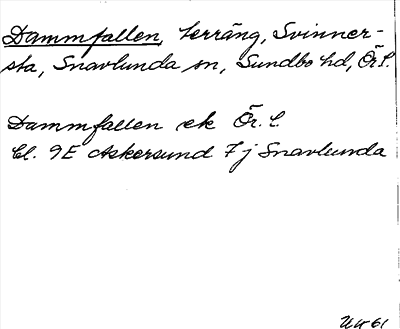 Dammfallen, terräng, Svinner-
sta, Snavlunda sn, Sundbo hd, Ör.l.
Dammfallen ek Ör. l.
Bl. 9E Askersund 7j Snavlunda
61